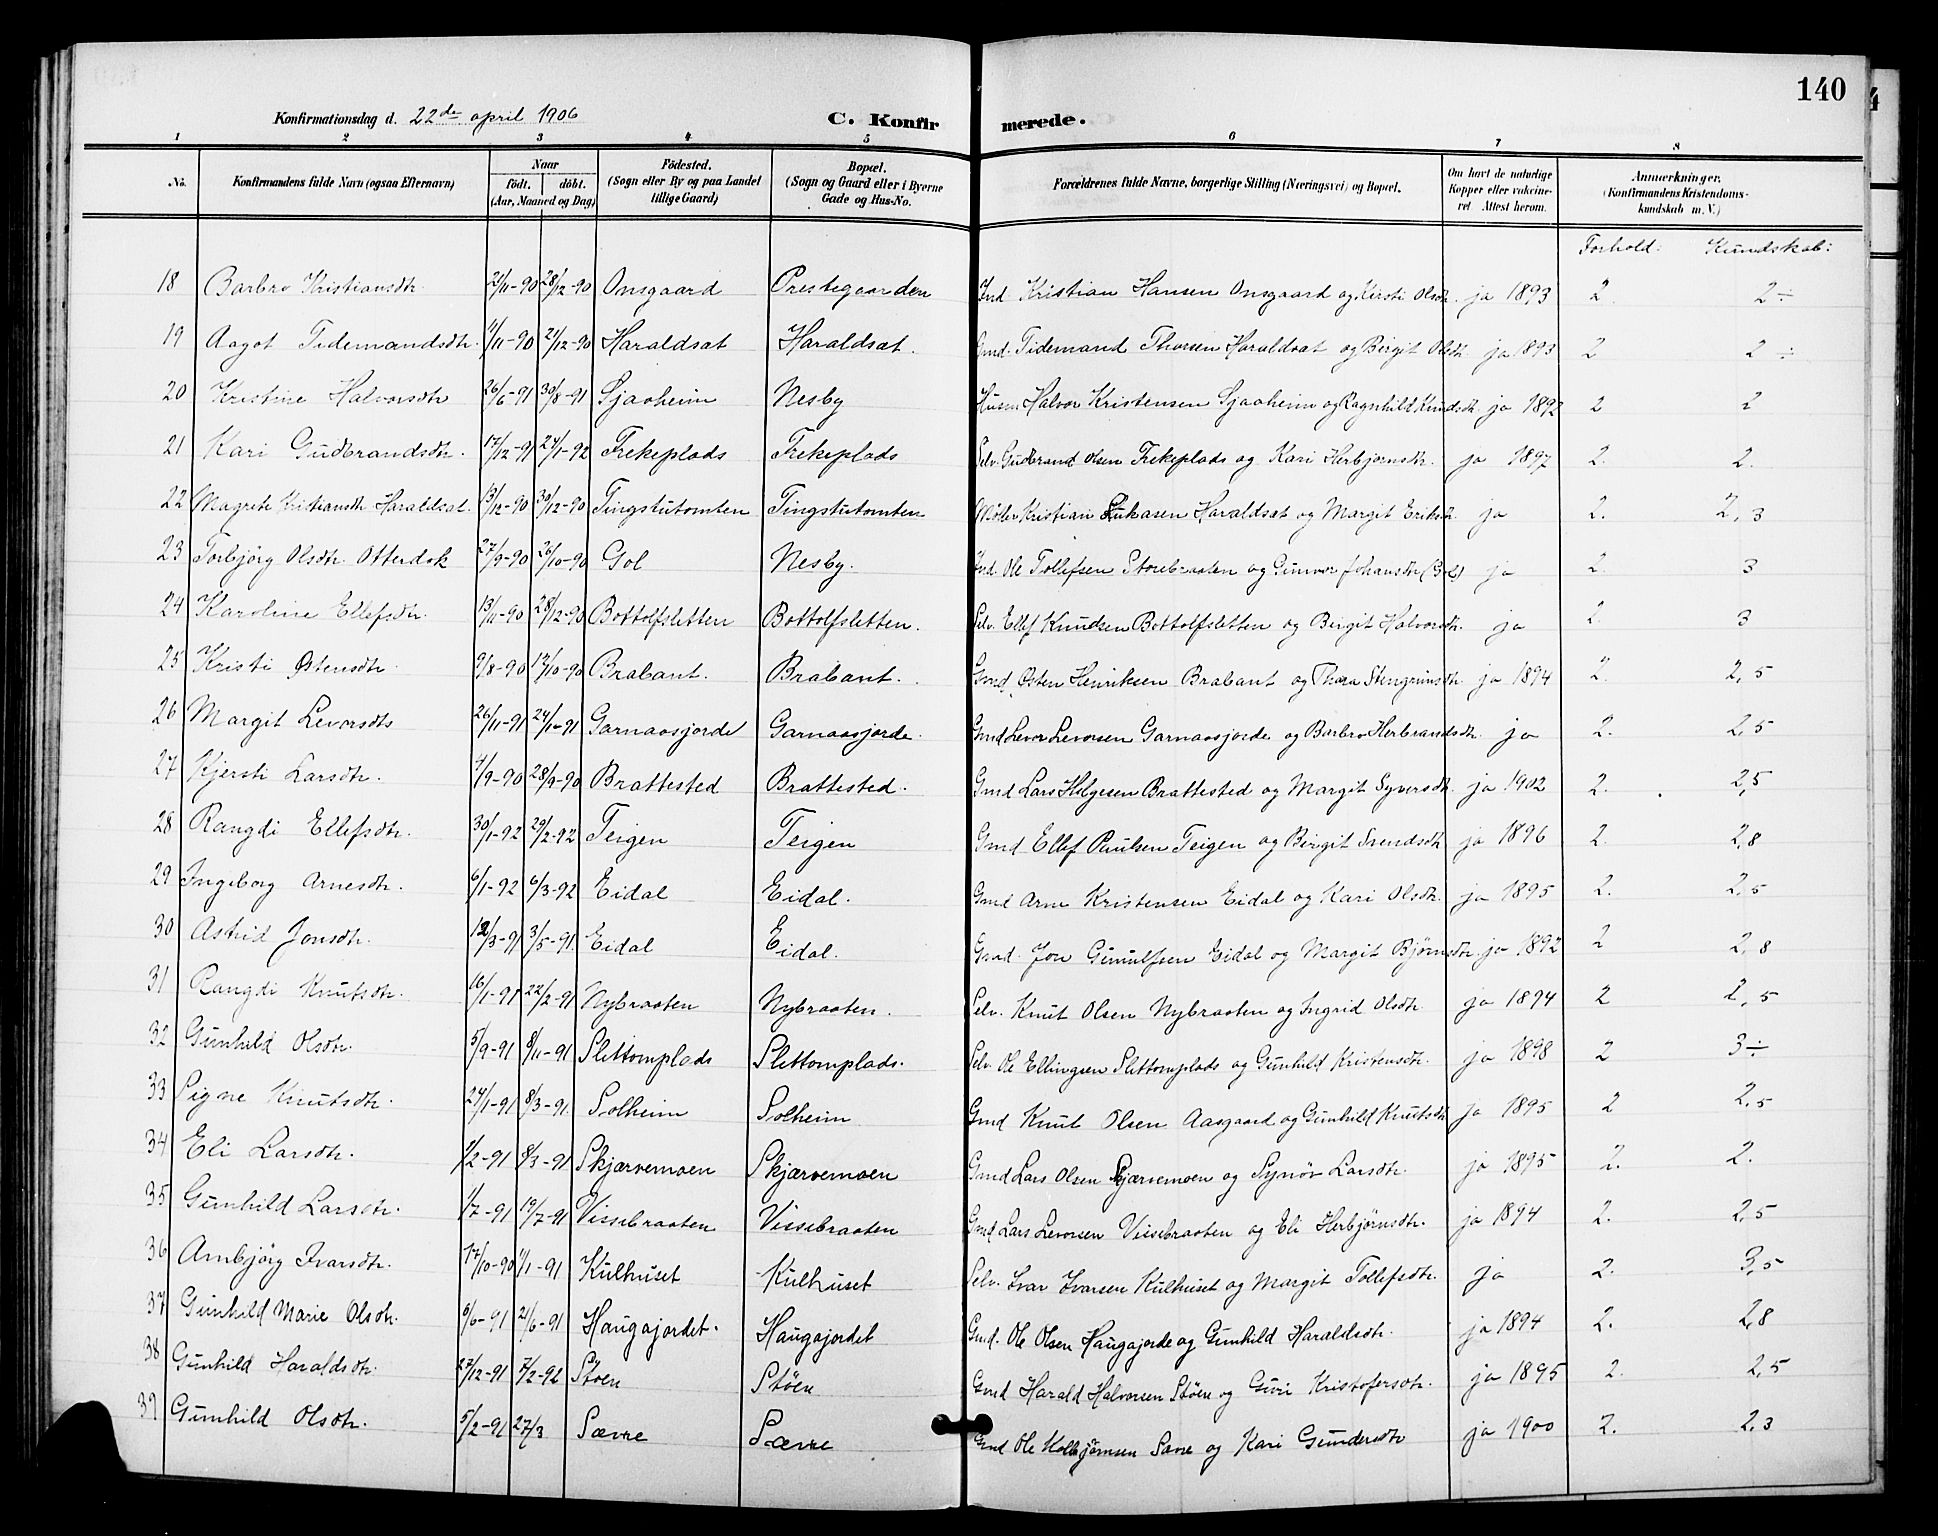 140
Konfirmationsdag d. 22de april 1906 C. Konfirmerede.
1 2 3 4 5 6 7 8
No. Konfirmandens fulde Navn (ogsaa Efternavn) Naar födt. döbt. (Aar, Maaned og Dag) Födested. (Sogn eller By og paa Landet tillige Gaard) Bopæl. (Sogn og Gaard eller i Byerne Gade og Hus-No. Forældrenes fulde Navne, borgerlige Stilling (Næringsvei) og Bopæl. Om havt de naturlige Kopper eller vakcineret Attest herom. Anmærkninger, (Konfirmandens Kristendomskundskab m. V.)
Forhold: Kundskab:
18 Barbro Kristiansdtr. 21/11-90 28/12-90 Onsgaard Prestegaarden Gmd Kristian Hansen Onsgaard og Kersti Olsdtr. ja 1893 2 2÷
19 Aagot Tidemandsdtr. 11/11-90 21/12-90 Haraldsat Haraldsat. Gmd. Tidemand Thorsen Haraldsat og Birgit Olsdtr. ja 1893 2 2÷
20 Kristine Halvorsdtr 26/6-91 30/8-91 Sjaaheim Nesby Husm Halvor Kristensen Sjaaheim og Ragnhild Knudsdtr. ja 1892 2 2
21 Kari Gudbrandsdtr. 17/12-91 24/1-92 Frekeplads Frekeplads Selv. Gudbrand Olsen Frekeplads og Kari Herbjørnsdtr. ja 1897 2. 2.
22 Magrete Kristiansdtr Haraldsat. 13/12-90 30/12-90 Tingstutomten Tingstutomten Møller Kristian Lukasen Haraldsat og Margit Eriksdtr. ja 2. 2,3
23 Torbjörg Olsdtr. Otterdok 27/9-90 26/10-90 Gol Nesby. Ind. Ole Tollefsen Storebraaten og Gunvor Johansdtr (Gol) ja 2. 3
24 Karoline Ellefsdtr. 13/11-90 28/12-90 Bottolfsletten Bottolfsletten. Selv. Ellef Knudsen Bottolfsletten og Birgit Halvorsdtr. ja 2. 3
25 Kristi Østensdtr. 9/8-90 12/10-90 Brabant. Brabant. Gmd Østen Henriksen Brabant og Thora Stengrimsdtr. ja 1894 2. 2,5
26 Margit Levorsdtr 26/11-91 24/1-91 Garnaasjorde Garnaasjorde. Gmd Levor Levorsen Garnaasjorde og Barbro Herbrandsdtr. ja 2. 2,5
27 Kjersti Larsdtr. 4/9-90 28/9-90 Brattested Brattested. Gmd Lars Helgesen Brattested og Margit Syversdtr. ja 1902 2. 2,5
28 Rangdi Ellefsdtr. 30/1-92 29/2-92 Teigen Teigen Gmd Ellef Paulsen Teigen og Birgit Svendsdtr ja 1896 2. 2,8
29 Ingeborg Arnesdtr. 6/1-92 6/3-92 Eidal Eidal. Gmd Arne Kristensen Eidal og Kari Olsdtr. ja 1895 2. 2,5
30 Astrid Jonsdtr. 12/3-91 3/5-91. Eidal Eidal. Gmd. Jon Gunulfsen Eidal og Margit Bjørnsdtr. ja 1892 2 2,8
31 Rangdi Knutsdtr. 16/1-91 22/2-91 Nybraaten Nybraaten. Selv. Knut Olsen Nybraaten og Ingrid Olsdtr. ja 1894 2 2,5
32 Gunhild Olsdtr. 5/9-91 8/11-91 Slettomplads Slettomplads. Selv. Ole Ellingsen Slettomplads og Gunhild Kristensdtr. ja 1898 2 3÷
33 Signe Knutsdtr. 24/1-91 8/3-91. Solheim Solheim Gmd Knut Olsen Aasgaard og Gunhild Knutsdtr. ja 1895 2 2,5
34 Eli Larsdtr. 1/2-91 8/3-91 Skjærvemoen Skjærvemoen Gmd Lars Olsen Skjærvemoen og Synøv Larsdtr. ja 1895 2. 2.
35 Gunhild Larsdtr. 1/7-91 19/7-91 Vissebraaten Vissebraaten Gmd Lars Levorsen Vissebraaten og Eli Herbjørnsdtr. ja 1894 2. 2,5
36 Arnbjörg Ivarsdtr. 17/10-90 11/1-91 Kulhuset Kulhuset Selv. Ivar Ivarsen Kulhuset og Margit Tollefsdtr. ja 2. 3,5
37 Gunhild Marie Olsdtr. 6/6-91 21/6-91 Haugajordet. Haugajordet Gmd. Ole Olsen Haugajorde og Gunhild Haraldsdtr. ja 1894 2. 2,8
38 Gunhild Haraldsdtr. 27/12-91 7/2-92 Stöen Stöen Gmd Harald Halvorsen Stöen og Guri Kristofersdtr. ja 1895 2. 2,5
39 Gunhild Olsdtr. 5/2-91 27/3 Sævre Sævre Gmd Ole Kolbjørnsen Sævre og Kari Gundersdtr ja 1900 2. 2,3